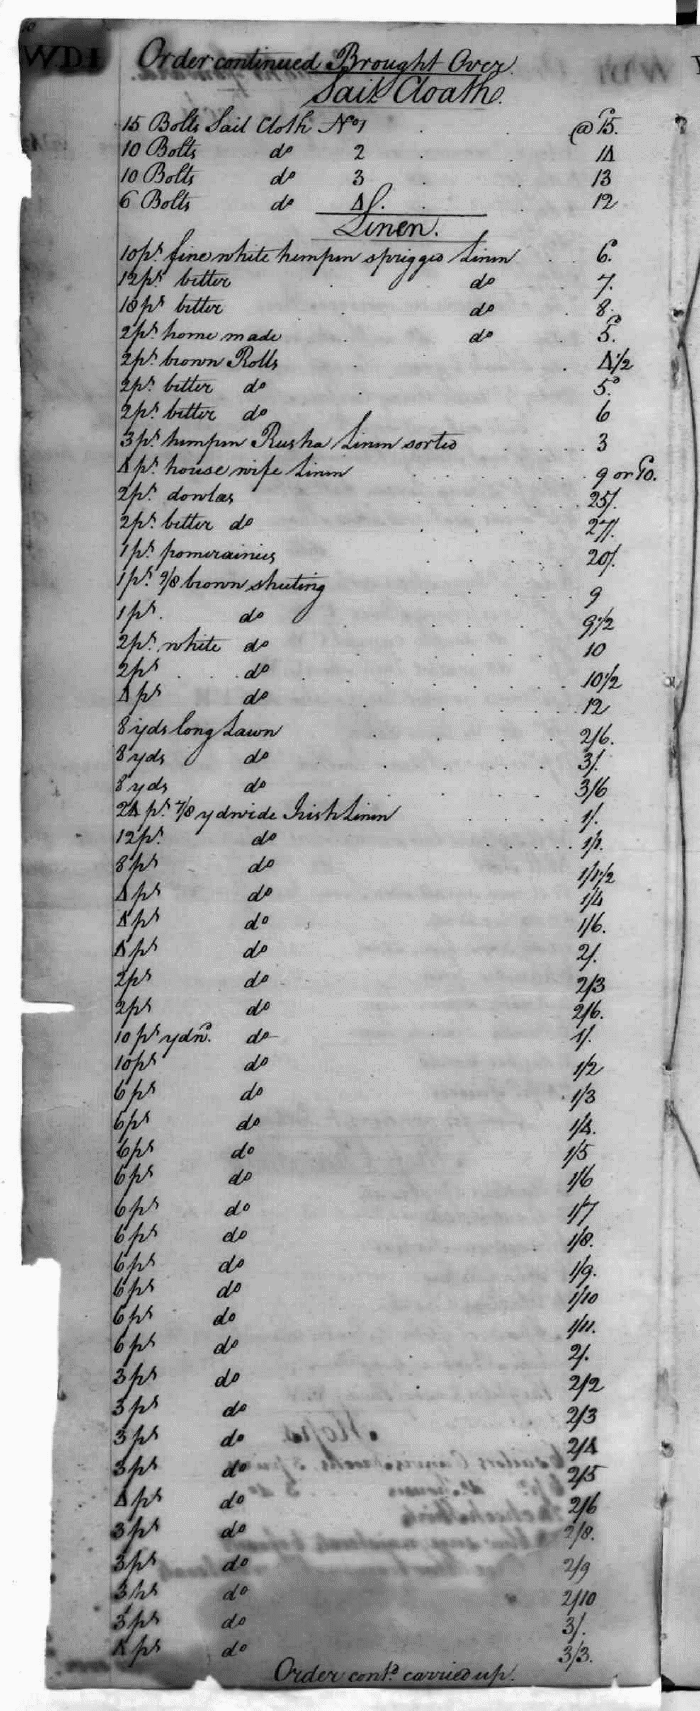 WD1
Order continued Brought Over
Sail Cloath.
15 Bolts Sail Cloth No 1 @ 15.
10 Bolts do 2 14
10 Bolts do 3 13
6 Bolts do 4 12
Linen.
10 ps. fine white hempen spriggd Linen 6.
12 ps. better do 7.
18 ps. better do 8.
2 ps. home made do 5.
2 ps. brown Rolls 4 1/2
2 ps. better do 5.
2 ps. better do 6
3 ps. hempen Rusha Linen sorted 3
4 ps. house wife Linen 9 or 10.
2 ps. dowlas 25/.
2 ps. better do 27/.
1 ps. pomerainies 20/.
1 ps. 9/8 brown sheeting 9
1 ps. do 9 1/2
2 ps. white do 10
2 ps. do 10 1/2
4 ps do 12
8 yds long Lawn 2/6.
8 yds do 3/.
8 yds do 3/6
24 ps. 7/8 yd wide Irish Linen 1/.
12 ps. do 1/1.
8 ps do 1/1 1/2
4 ps do 1/4
4 ps do 1/6.
4 ps do 2/.
2 ps do 2/3
2 ps do 2/6.
10 ps yd do 1/.
10 ps do 1/2
6 ps do 1/3
6 ps do 1/4.
6 ps do 1/5
6 ps do 1/6
6 ps do 1/7
6 ps do 1/8.
6 ps do 1/9.
6 ps do 1/10
6 ps do 1/11.
6 ps do 2/.
3 ps do 2/2
3 ps do 2/3
3 ps do 2/4
3 ps do 2/5
4 ps do 2/6
3 ps do 2/8.
3 ps do 2/9
3 ps do 2/10
3 ps do 3/.
4 ps do 3/3.
Order contd. carried up.